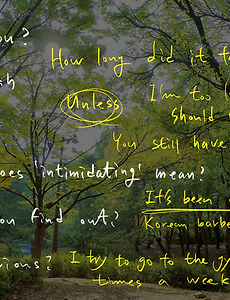 ou?
How long did it t
sh
Unless
I'm too
should
You still have
oes 'intimidating' mean?
It's been
ou find out?
Korean barbe
vious?
I try to go to the gy
times a week